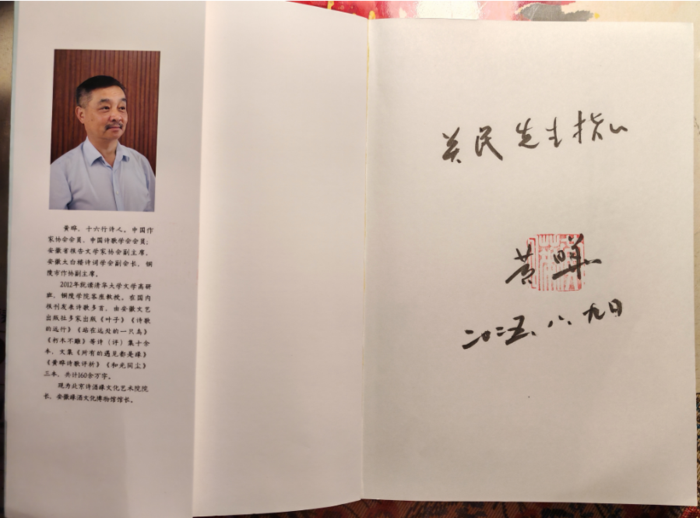 黄晔，十六行诗人。中国作
家协会会员，中国诗歌学会会员；
安徽省报告文学家协会副主席，
安徽太白楼诗词学会副会长，铜
陵市作协副主席。
2012年就读清华大学文学高研
班，铜陵学院客座教授。在国内
报刊发表诗歌多首，由安徽文艺
出版社多家出版《叶子》《诗歌
的远行》《站在远处的一只鸟》
《朽木不雕》等诗（评）集十余
本，文集《所有的遇见都是缘》
《黄晔诗歌评析》《和光同尘》
三本，共计160余万字。
现为北京诗酒缘文化艺术院院
长，安徽缘酒文化博物馆馆长。
关民先生指正
黄晔
二〇二五、八、九日